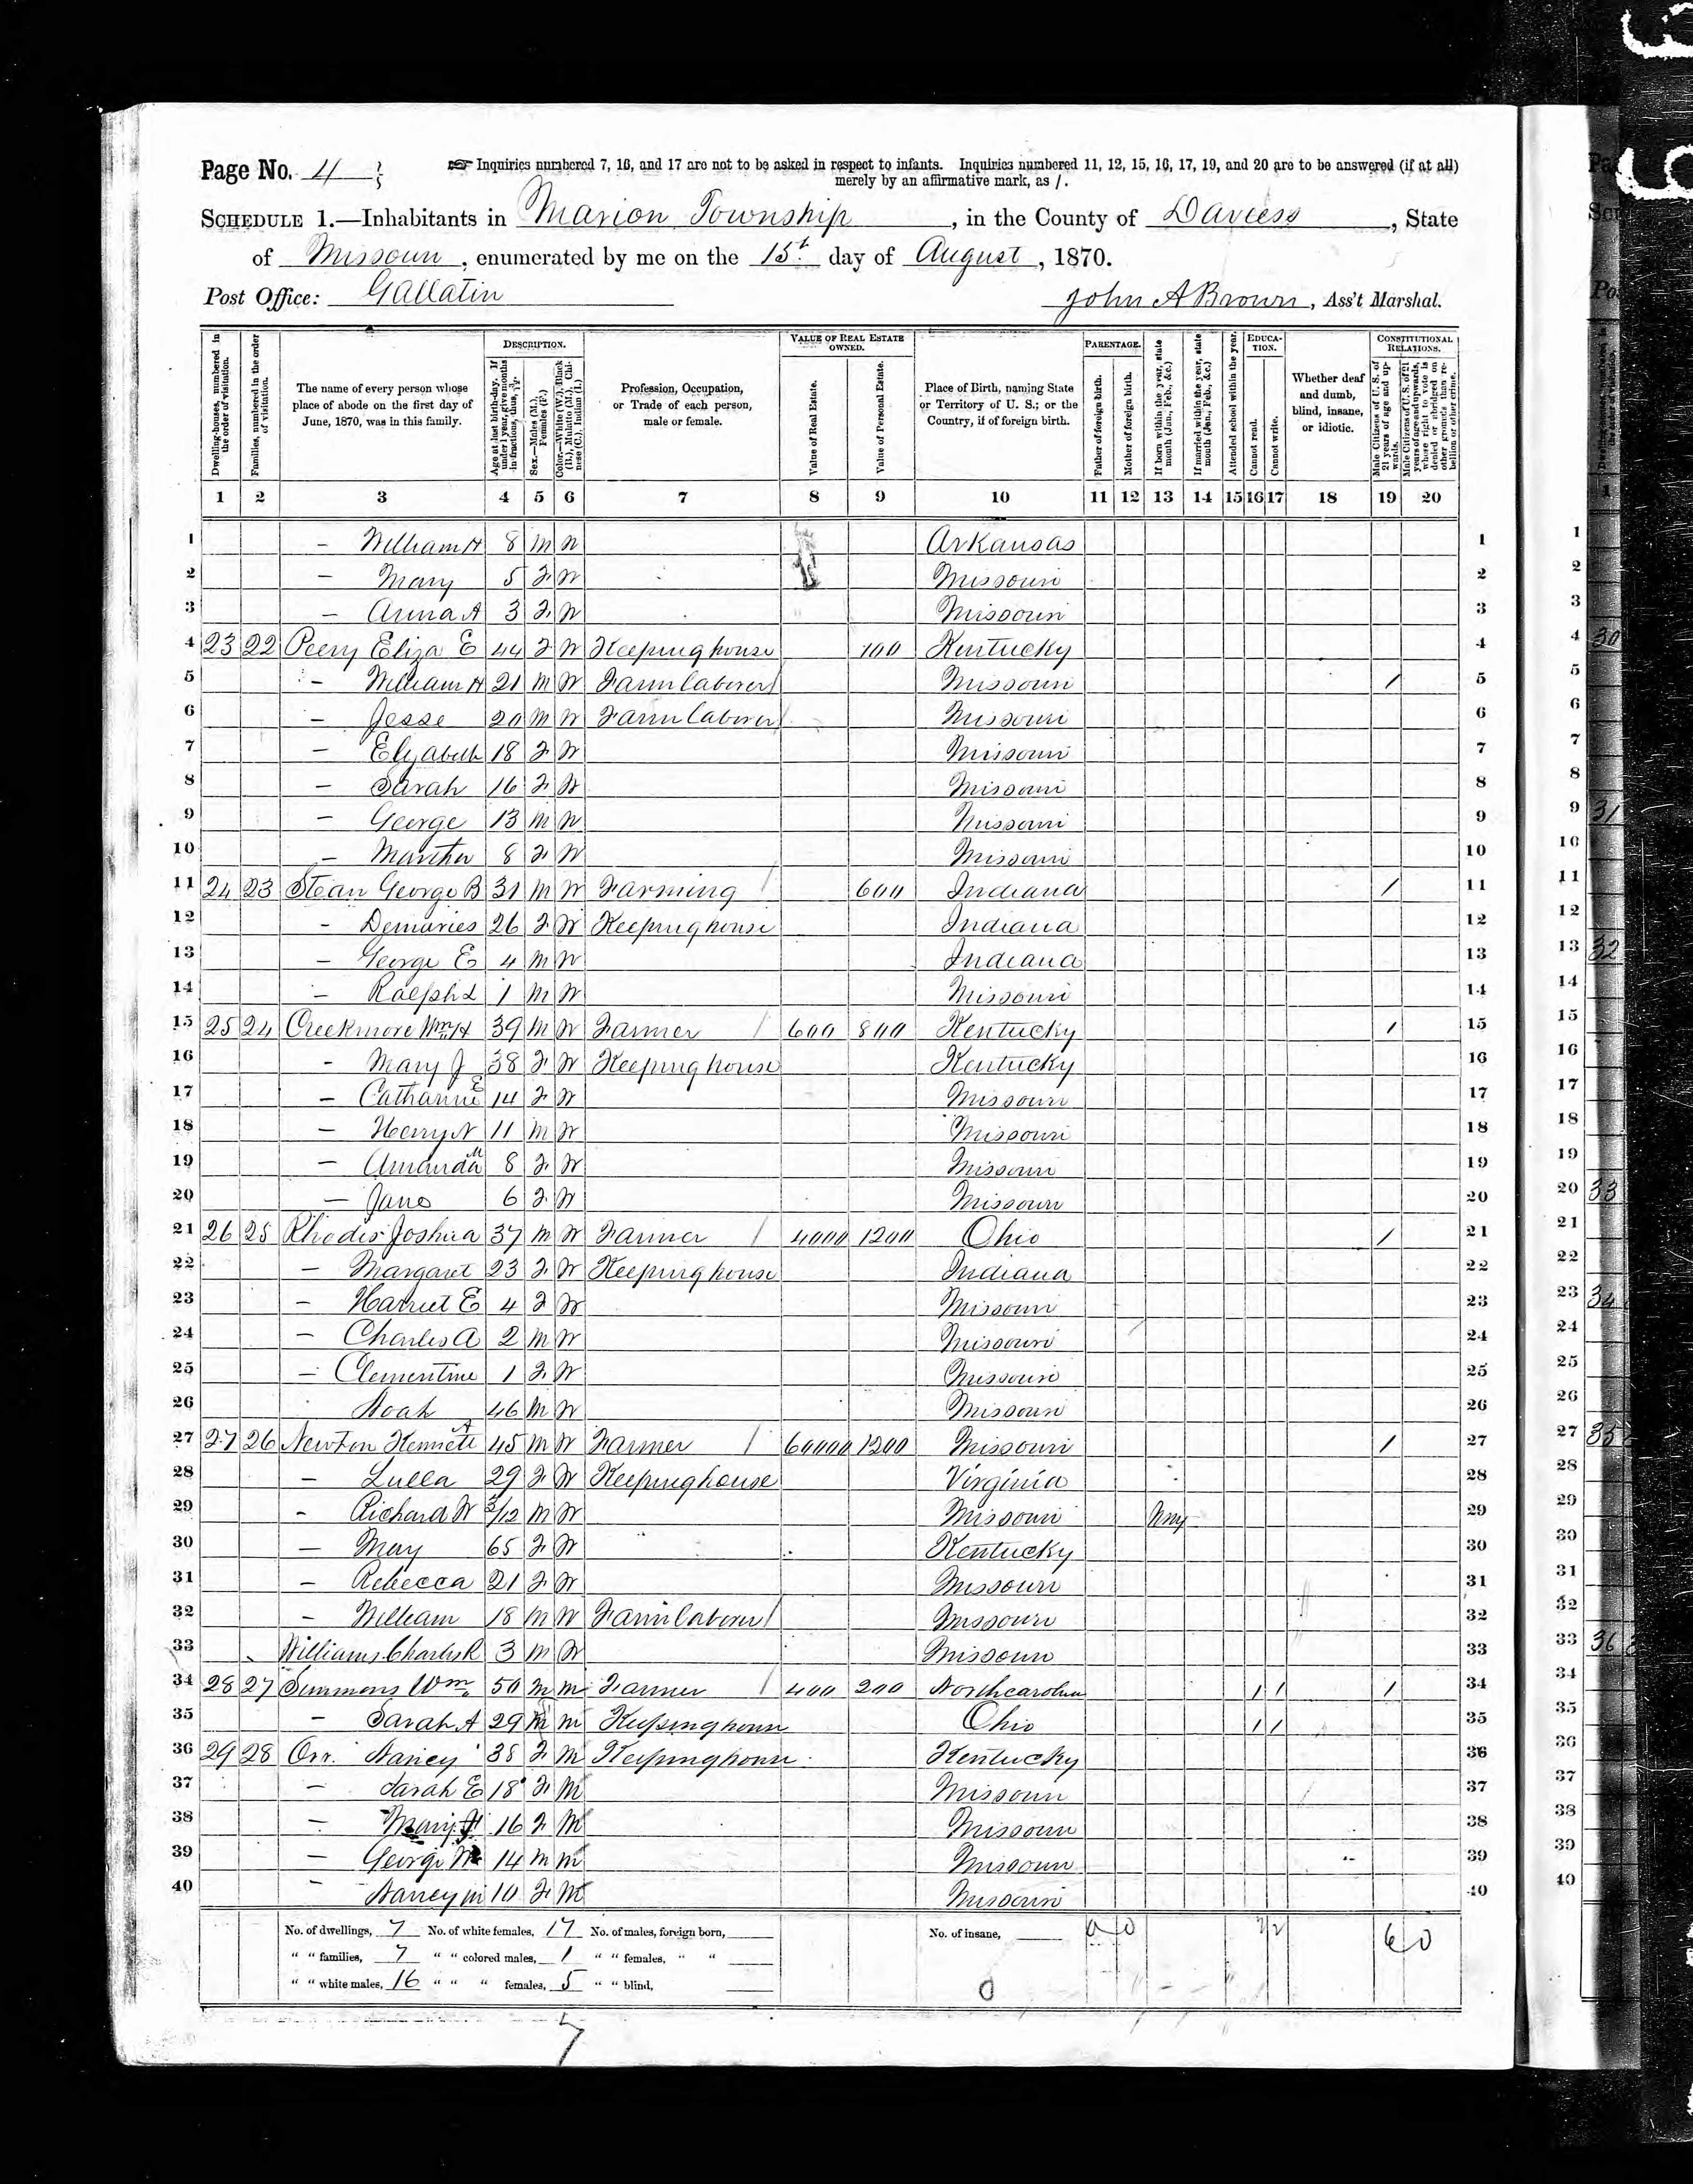 Page No. 4
Inquiries numbered 7, 16, and 17 are not to be asked in respect to infants. Inquiries numbered 11, 12, 15, 16, 17, 19, and 20 are to be answered (if at all)
merely by an affirmative mark, as /.
SCHEDULE 1.—Inhabitants in Marion Township, in the County of Daviess, State
of Missouri, enumerated by me on the 15t. day of August, 1870.
Post Office: Gallatin
John A Brown, Ass't Marshal.
Dwelling-houses, numbered in the order of visitation.
Families, numbered in the order of visitation.
The name of every person whose place of abode on the first day of June, 1870, was in this family.
DESCRIPTION.
Age at last birth-day. If under 1 year, give months in fractions, thus, 3/12.
Sex.—Males (M.), Females (F.)
Color.—White (W.), Black (B.), Mulatto (M.), Chinese (C.), Indian (I.)
Profession, Occupation, or Trade of each person, male or female.
VALUE OF REAL ESTATE OWNED.
Value of Real Estate.
Value of Personal Estate.
Place of Birth, naming State or Territory of U. S.; or the Country, if of foreign birth.
PARENTAGE.
Father of foreign birth.
Mother of foreign birth.
If born within the year, state month (Jan., Feb., &c.)
If married within the year, state month (Jan., Feb., &c.)
Attended school within the year.
EDUCATION.
Cannot read.
Cannot write.
Whether deaf and dumb, blind, insane, or idiotic.
CONSTITUTIONAL RELATIONS.
Male Citizens of U. S. of 21 years of age and upwards.
Male Citizens of U. S. of 21 years of age and upwards, whose right to vote is denied or abridged on other grounds than rebellion or other crime.
1 2 3 4 5 6 7 8 9 10 11 12 13 14 15 16 17 18 19 20
1 — William H 8 M W Arkansas 1
2 — Mary 5 F W Missouri 2
3 — Anna A 3 F W Missouri 3
4 23 22 Peery Eliza E 44 F W Keeping house 100 Kentucky 4
5 — William H 21 M W Farm laborer Missouri / 5
6 — Jesse 20 M W Farm laborer Missouri 6
7 — Elizabeth 18 F W Missouri 7
8 — Sarah 16 F W Missouri 8
9 — George 13 M W Missouri 9
10 — Martha 8 F W Missouri 10
11 24 23 Stean George B 31 M W Farming 600 Indiana / 11
12 — Demaries 26 F W Keeping house Indiana 12
13 — George E 4 M W Indiana 13
14 — Ralph L 1 M W Missouri 14
15 25 24 Creekmore Wm H 39 M W Farmer 600 800 Kentucky / 15
16 — Mary J 38 F W Keeping house Kentucky 16
17 — Catharine E 14 F W Missouri 17
18 — Henry N 11 M W Missouri 18
19 — Amanda M 8 F W Missouri 19
20 — Jane 6 F W Missouri 20
21 26 25 Rhodes Joshua 37 M W Farmer 4000 1200 Ohio / 21
22 — Margaret 23 F W Keeping house Indiana 22
23 — Harriet E 4 F W Missouri 23
24 — Charles A 2 M W Missouri 24
25 — Clementine 1 F W Missouri 25
26 Noah 46 M W Missouri 26
27 27 26 Newton Kenneth A 45 M W Farmer 60000 1200 Missouri / 27
28 — Luella 29 F W Keeping house Virginia 28
29 — Richard W /12 M W Missouri 29
30 — May 65 F W Kentucky 30
31 — Rebecca 21 F W Missouri 31
32 — William 18 M W Farm laborer Missouri 32
33 Williams Charles R 3 M W Missouri 33
34 28 27 Simmons Wm. 50 M M Farmer 400 200 North carolina / / / 34
35 — Sarah A 29 M Keeping house Ohio / / 35
36 29 28 Orr Nancy 38 F M Keeping house Kentucky 36
37 — Sarah E 18 F M Missouri 37
38 — Mary 16 F M Missouri 38
39 — George 14 M M Missouri 39
40 — Nancy M 10 F M Missouri 40
No. of dwellings, 7 No. of white females, 17 No. of males, foreign born, No. of insane,
" " families, 7 " " colored males, 1 " " females, " "
" " white males, 16 " " " females, 5 " " blind,
0
6 0
7